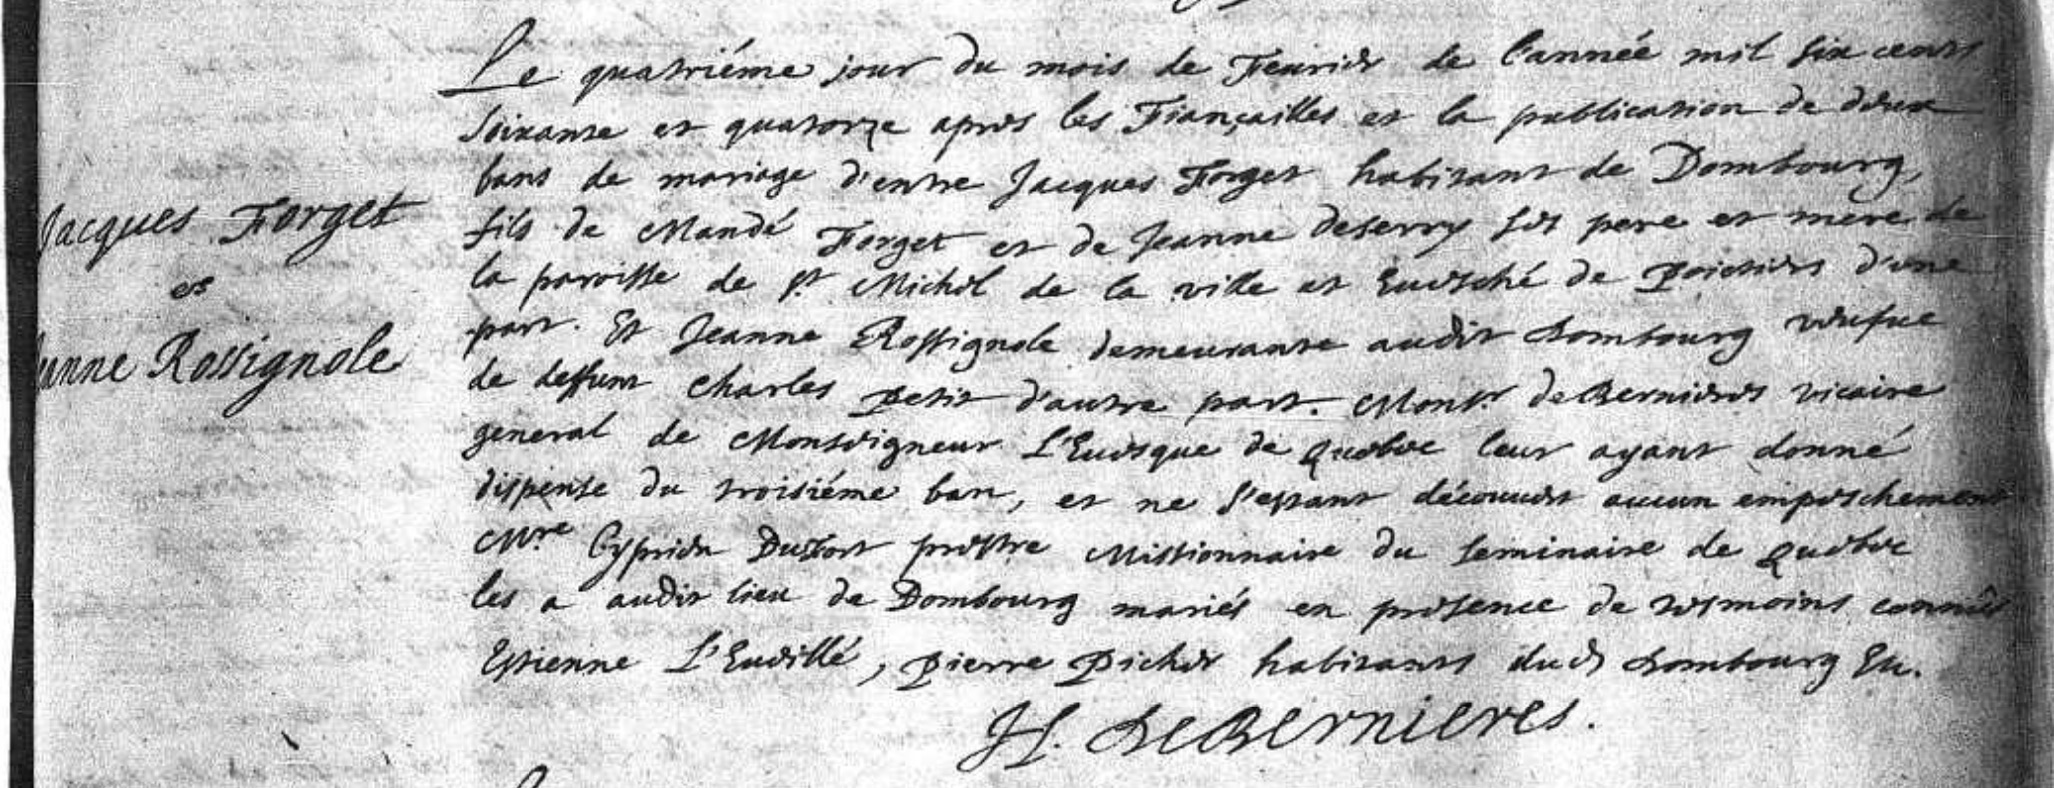 Jacques Forget
et
Jeanne Rossignole
Le quatriéme jour du mois de Feurier de l'année mil six cents
soixante et quatorze apres les Fiançailles et la publication de deux
bans de mariage d'entre Jacques Forget habitant de Dombourg,
fils de Mandé Forget et de Jeanne deserry ses pere et mere de
la paroisse de st Michel de la ville et Euesché de Poictiers d'une
part. Et Jeanne Rossignole demeurante audit Dombourg veufue
de deffunt Charles Petit d'autre part. Monsr de Bernieres vicaire
general de Monseigneur L'Euesque de Quebec leur ayant donné
dispense du troisiéme ban, et ne s'estant découuert aucun empeschement
Mre Cyprien Dufort prestre Missionnaire du seminaire de Quebec
les a audit lieu de Dombourg mariés en presence de tesmoins connûs
Estienne L'Eueillé, Pierre Picher habitants dud Dombourg &c.
H. DeBernieres.